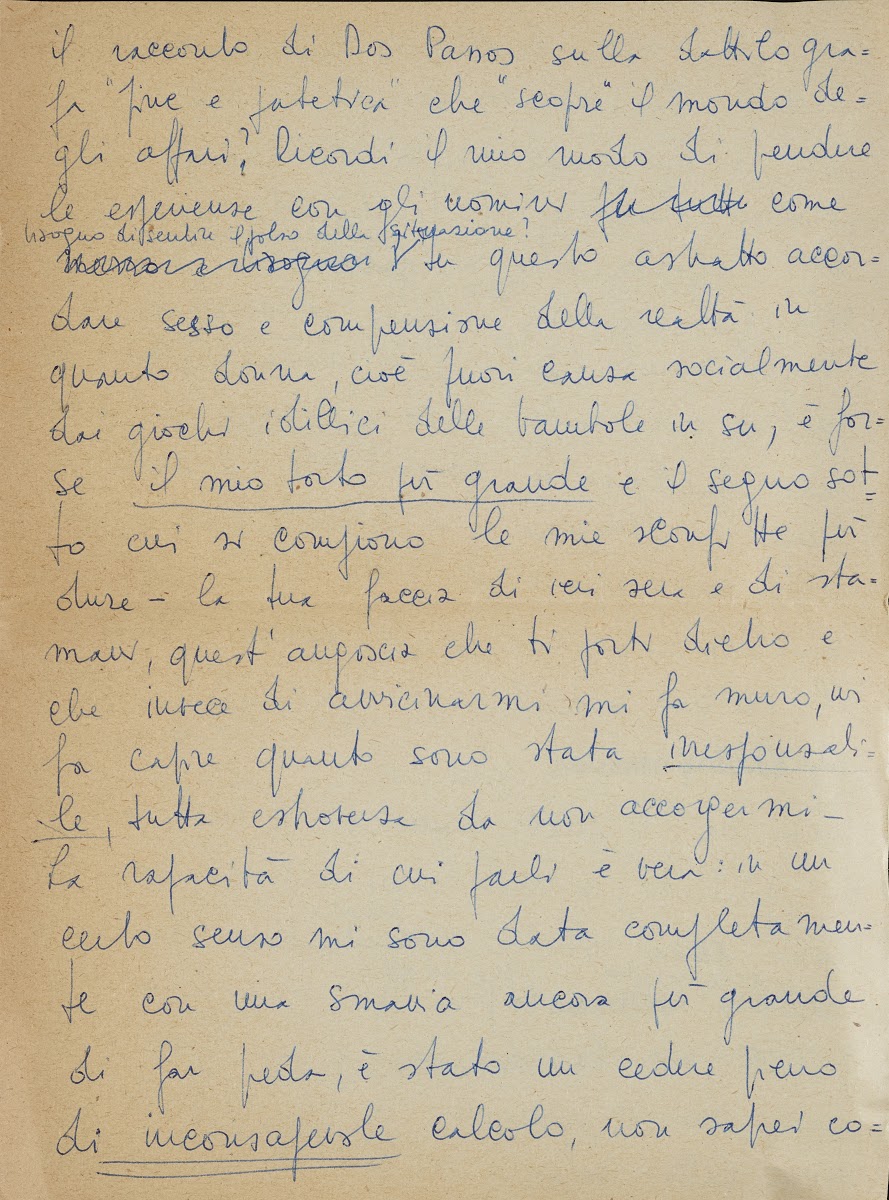 il racconto di Dos Passos sulla dattilogra=
fa "fine e patetica" che "scopre" il mondo de=
gli affari? Ricordi il mio modo di prendere
le esperienze con gli uomini come
bisogno di sentire il polso della situazione?
In questo astratto accor=
dare sesso e comprensione della realtà in
quanto donna, cioè fuori causa socialmente
dai giochi idillici delle bambole in su, è for=
se il mio torto più grande e il segno sot=
to cui si compiono le mie sconfitte più
dure – la tua faccia di ieri sera e di sta=
mani, quest'angoscia che ti porti dietro e
che invece di avvicinarmi mi fa muro, mi
fa capire quanto sono stata irresponsabi=
le, tutta estroversa da non accorgermi –
La rapacità di cui parli è vera: in un
certo senso mi sono data completamen=
te con una smania ancora più grande
di far preda, è stato un cedere pieno
di inconsapevole calcolo, non saprei co=